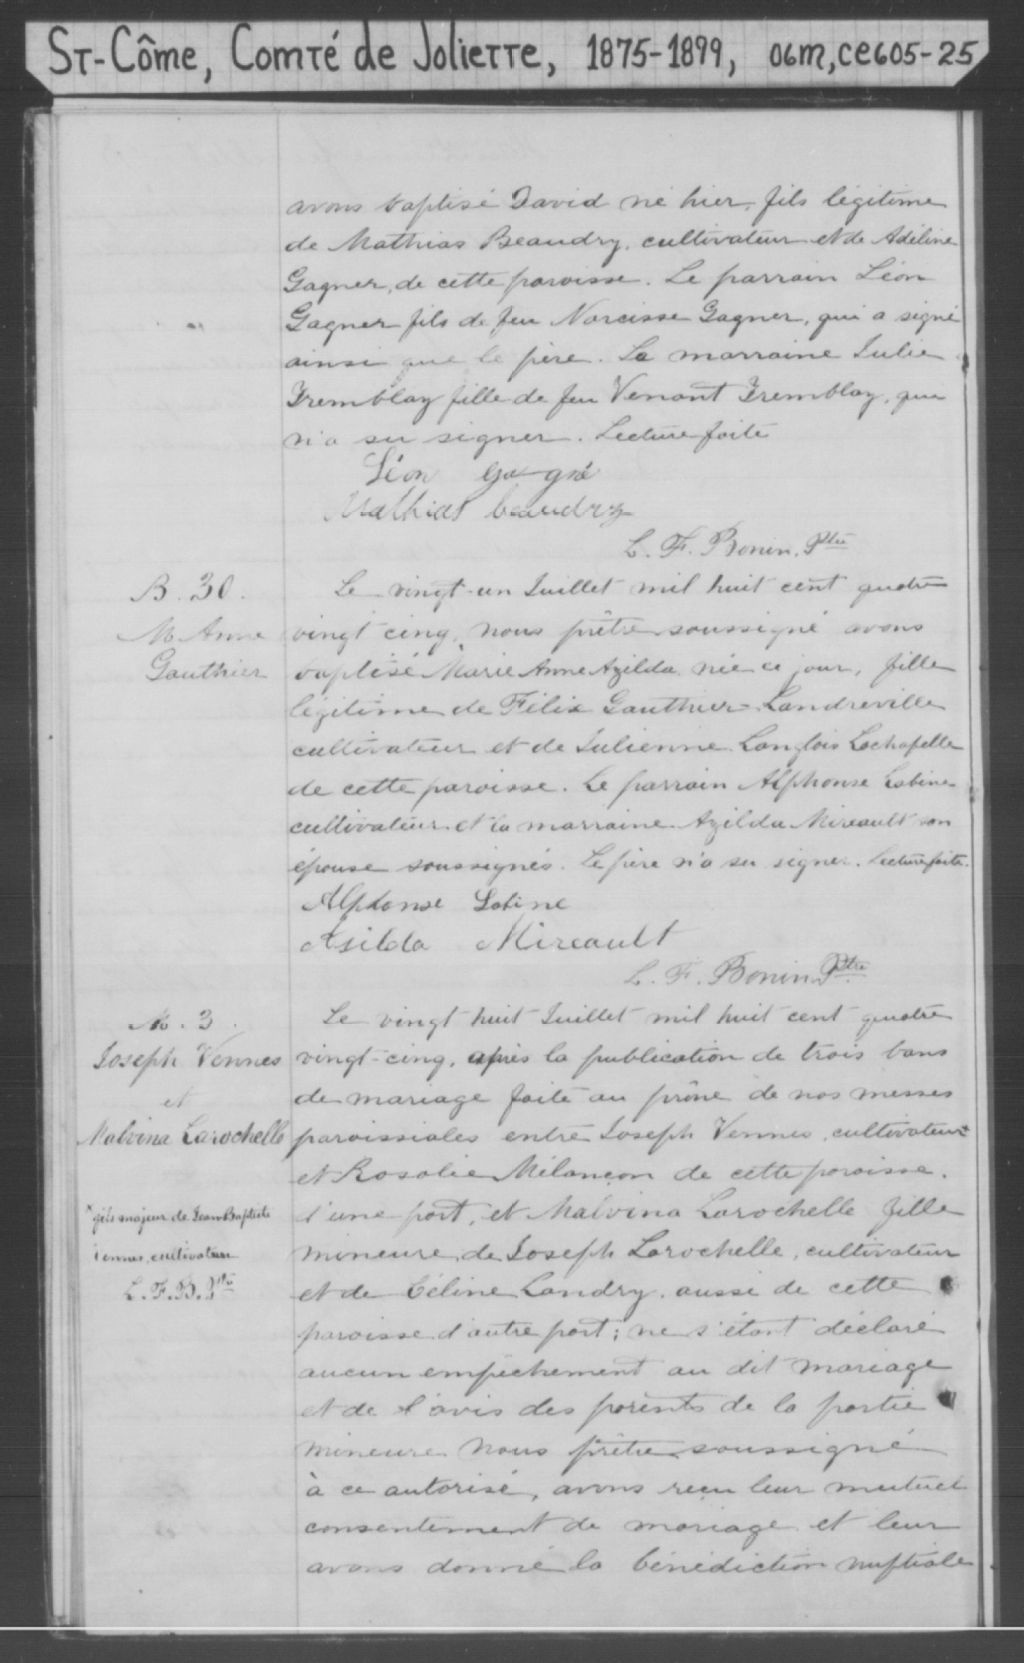 St-Côme, Comté de Joliette, 1875-1899, 06M,CE605-25
avons baptisé David né hier, fils légitime
de Mathias Beaudry, cultivateur et de Adéline
Gagner, de cette paroisse. Le parrain Léon
Gagner fils de feu Narcisse Gagner, qui a signé
ainsi que le père. La marraine Julie
Tremblay fille de feu Venant Tremblay, qui
n'a su signer. Lecture faite
Léon Gagné
Mathias beaudry
L. F. Bonin, Ptre
B. 30.
M. Anne
Gauthier
Le vingt-un Juillet mil huit cent quatre
vingt cinq, nous prêtre soussigné avons
baptisé Marie Anne Azilda née ce jour, fille
légitime de Félix Gauthier-Landreville
cultivateur et de Julienne Langlois Lachapelle
de cette paroisse. Le parrain Alphonse Labine
cultivateur et la marraine Azilda Mireault son
épouse soussignés. Le père n'a su signer. Lecture faite.
Alphonse Labine
Asilda Mireault
L. F. Bonin Ptre
M. 3.
Joseph Vennes
et
Malvina Larochelle
x fils majeur de Jean Baptiste
Vennes, cultivateur
L. F. B. Ptre
Le vingt huit Juillet mil huit cent quatre
vingt-cinq, après la publication de trois bans
de mariage faite au prône de nos messes
paroissiales entre Joseph Vennes, cultivateur x
et Rosalie Mélançon de cette paroisse.
d'une part, et Malvina Larochelle fille
mineure de Joseph Larochelle, cultivateur
et de Céline Landry, aussi de cette
paroisse d'autre part; ne s'étant déclaré
aucun empêchement au dit mariage
et de l'avis des parents de la partie
mineure nous prêtre soussigné
à ce autorisé, avons reçu leur mutuel
consentement de mariage et leur
avons donné la bénédiction nuptiale